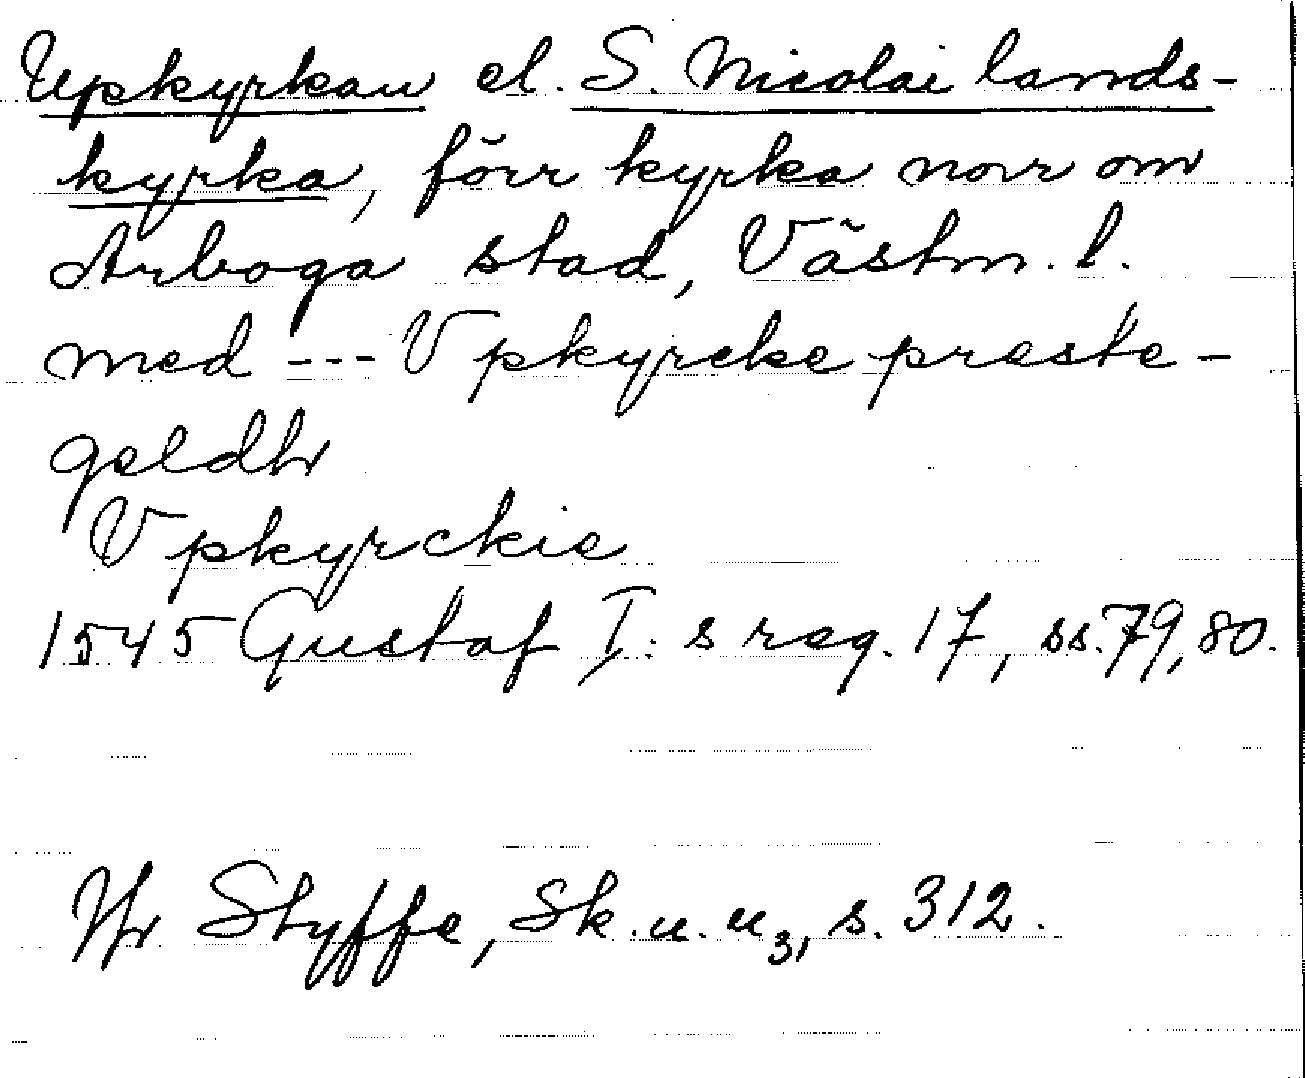 Upkyrkan el. S. Nicolai lands-
kyrka, förr kyrka norr om
Arboga stad, Västm. l.
med --- Vpkyrcke preste-
geldhr
Vpkyrckie
1545 Gustaf I: s reg. 17, ss. 79, 80.
Jfr Styffe, Sk. u. u3, s. 312.